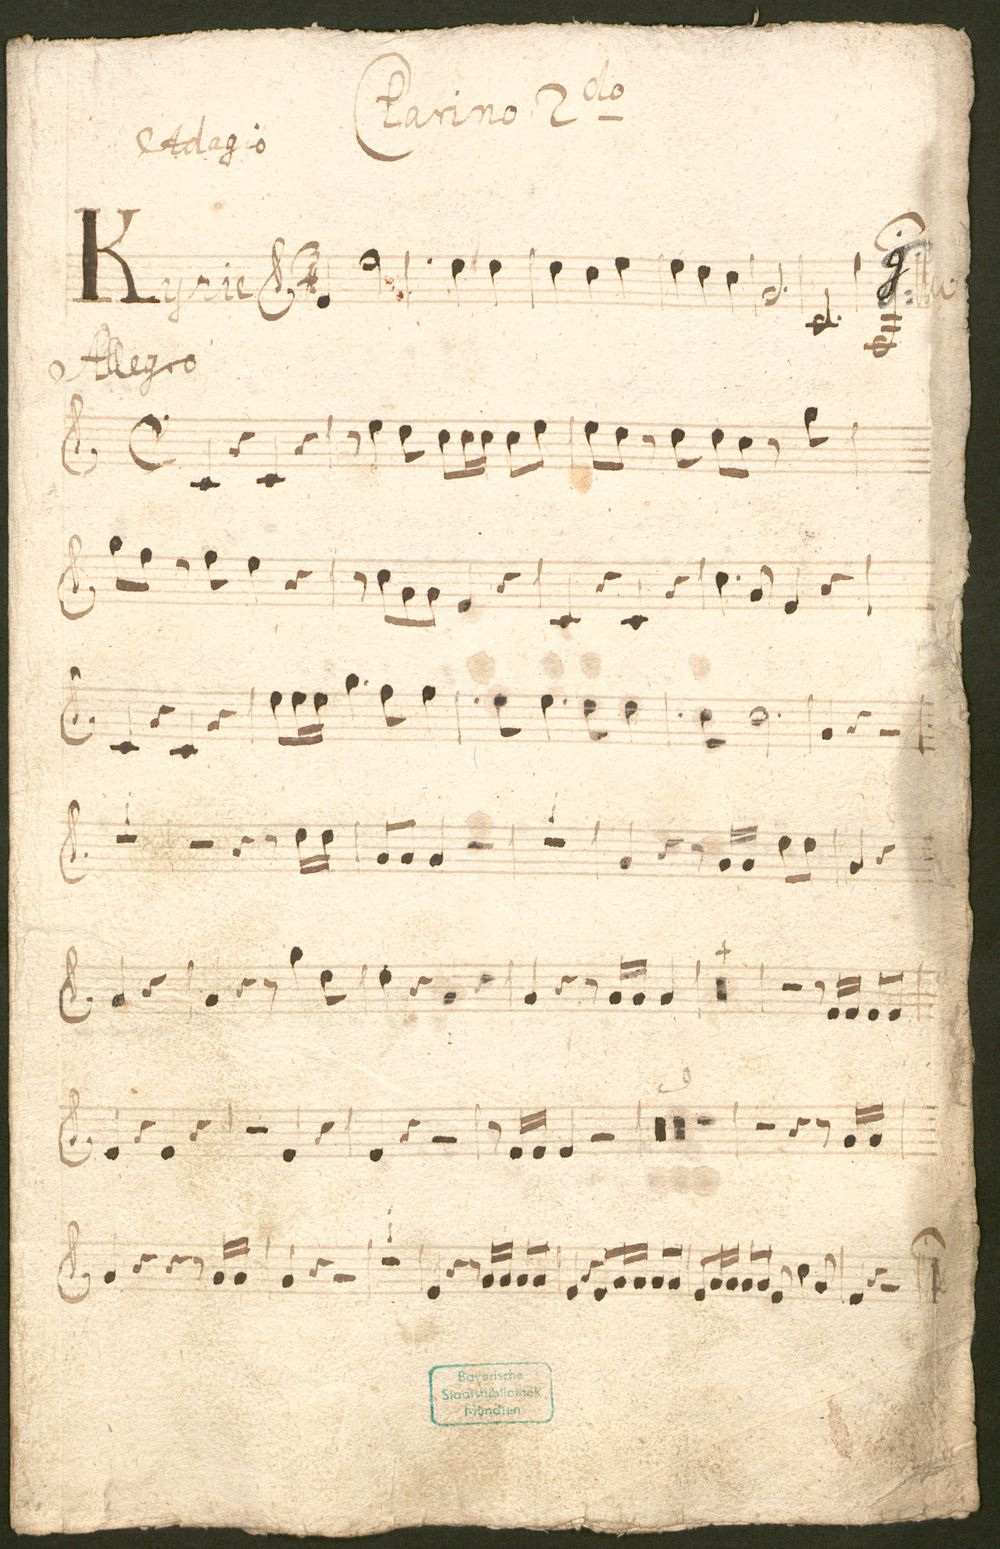 Clarino 2do
Adagio
Kyrie
Allegro
Bayerische
Staatsbibliothek
München